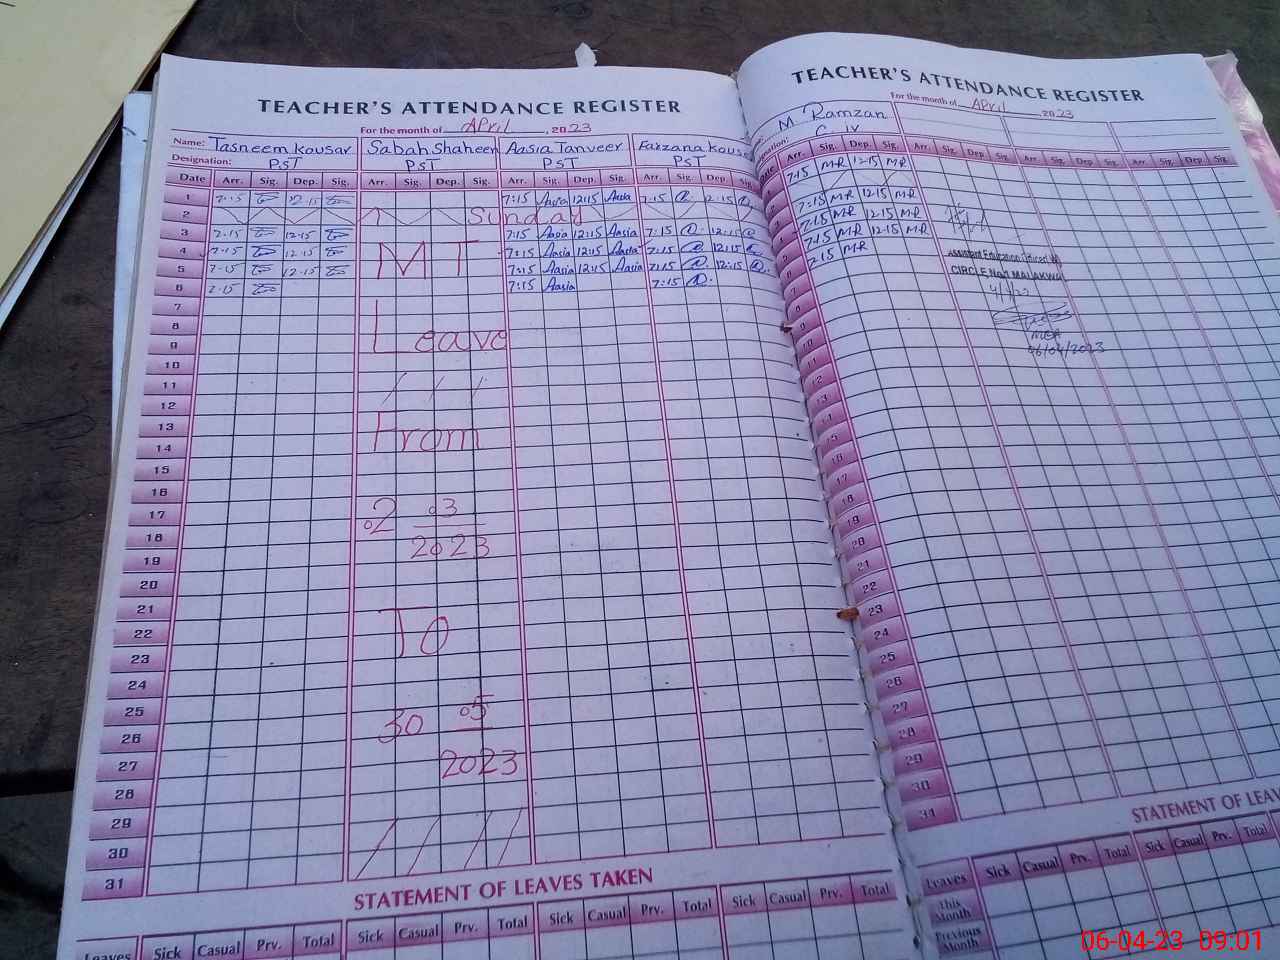 TEACHER'S ATTENDANCE REGISTER
For the month of April, 2023
Name: Tasneem Kousar Sabah Shaheen Aasia Tanveer Farzana Kous
Designation: PST PST PST PST
Date Arr. Sig. Dep. Sig. Arr. Sig. Dep. Sig. Arr. Sig. Dep. Sig. Arr. Sig. Dep. Sig.
1 7:15 12:15 7:15 Aasia 12:15 Aasia 7:15 12:15
2 Sunday
3 7:15 12:15 7:15 Aasia 12:15 Aasia 7:15 12:15
4 7:15 12:15 MT 7:15 Aasia 12:15 Aasia 7:15 12:15
5 7:15 12:15 7:15 Aasia 12:15 Aasia 7:15 12:15
6 7:15 7:15 Aasia 7:15
7
8 Leave
9
10
11
12
13 From
14
15
16
17 02 03
18 2023
19
20
21
22 To
23
24
25 05
26 30
27 2023
28
29
30
31
STATEMENT OF LEAVES TAKEN
Leaves Sick Casual Prv. Total Sick Casual Prv. Total Sick Casual Prv. Total Sick Casual Prv. Total
TEACHER'S ATTENDANCE REGISTER
For the month of April 2023
M Ramzan
C. IV
Date Arr. Sig. Dep. Sig. Arr. Sig. Dep. Sig. Arr. Sig. Dep. Sig. Arr. Sig. Dep. Sig.
7:15 MR 12:15 MR
7:15 MR 12:15 MR
7:15 MR 12:15 MR
7:15 MR 12:15 MR
7:15 MR
Assistant Education Officer(W)
CIRCLE No.1 MALAKWAL
MEA
06/04/2023
9
10
11
12
13
14
15
16
17
18
19
20
21
22
23
24
25
26
27
28
29
30
31
STATEMENT OF LEAV
Leaves Sick Casual Prv. Total Sick Casual Prv. Total
This Month
Previous Month
06-04-23 09:01